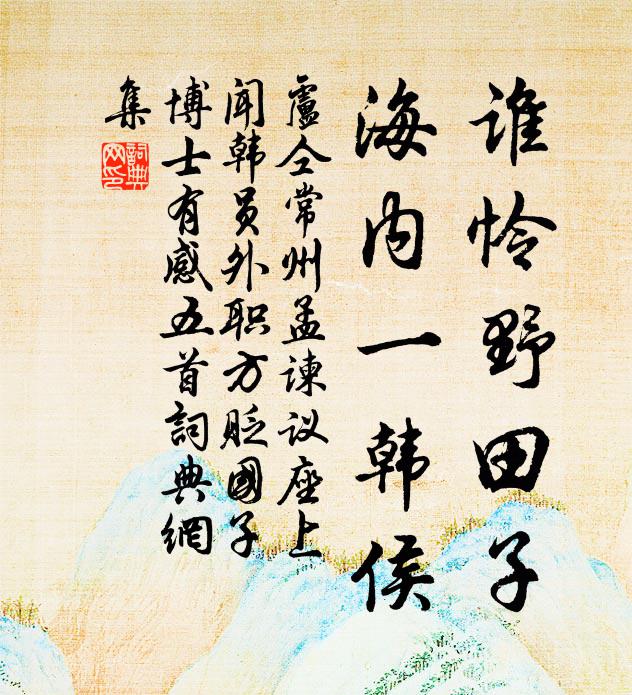 谁怜野田子
海内一韩侯
盧仝常州孟谏议座上
闻韩员外职方贬國子
博士有感五首詞典網
集
詞典
网印